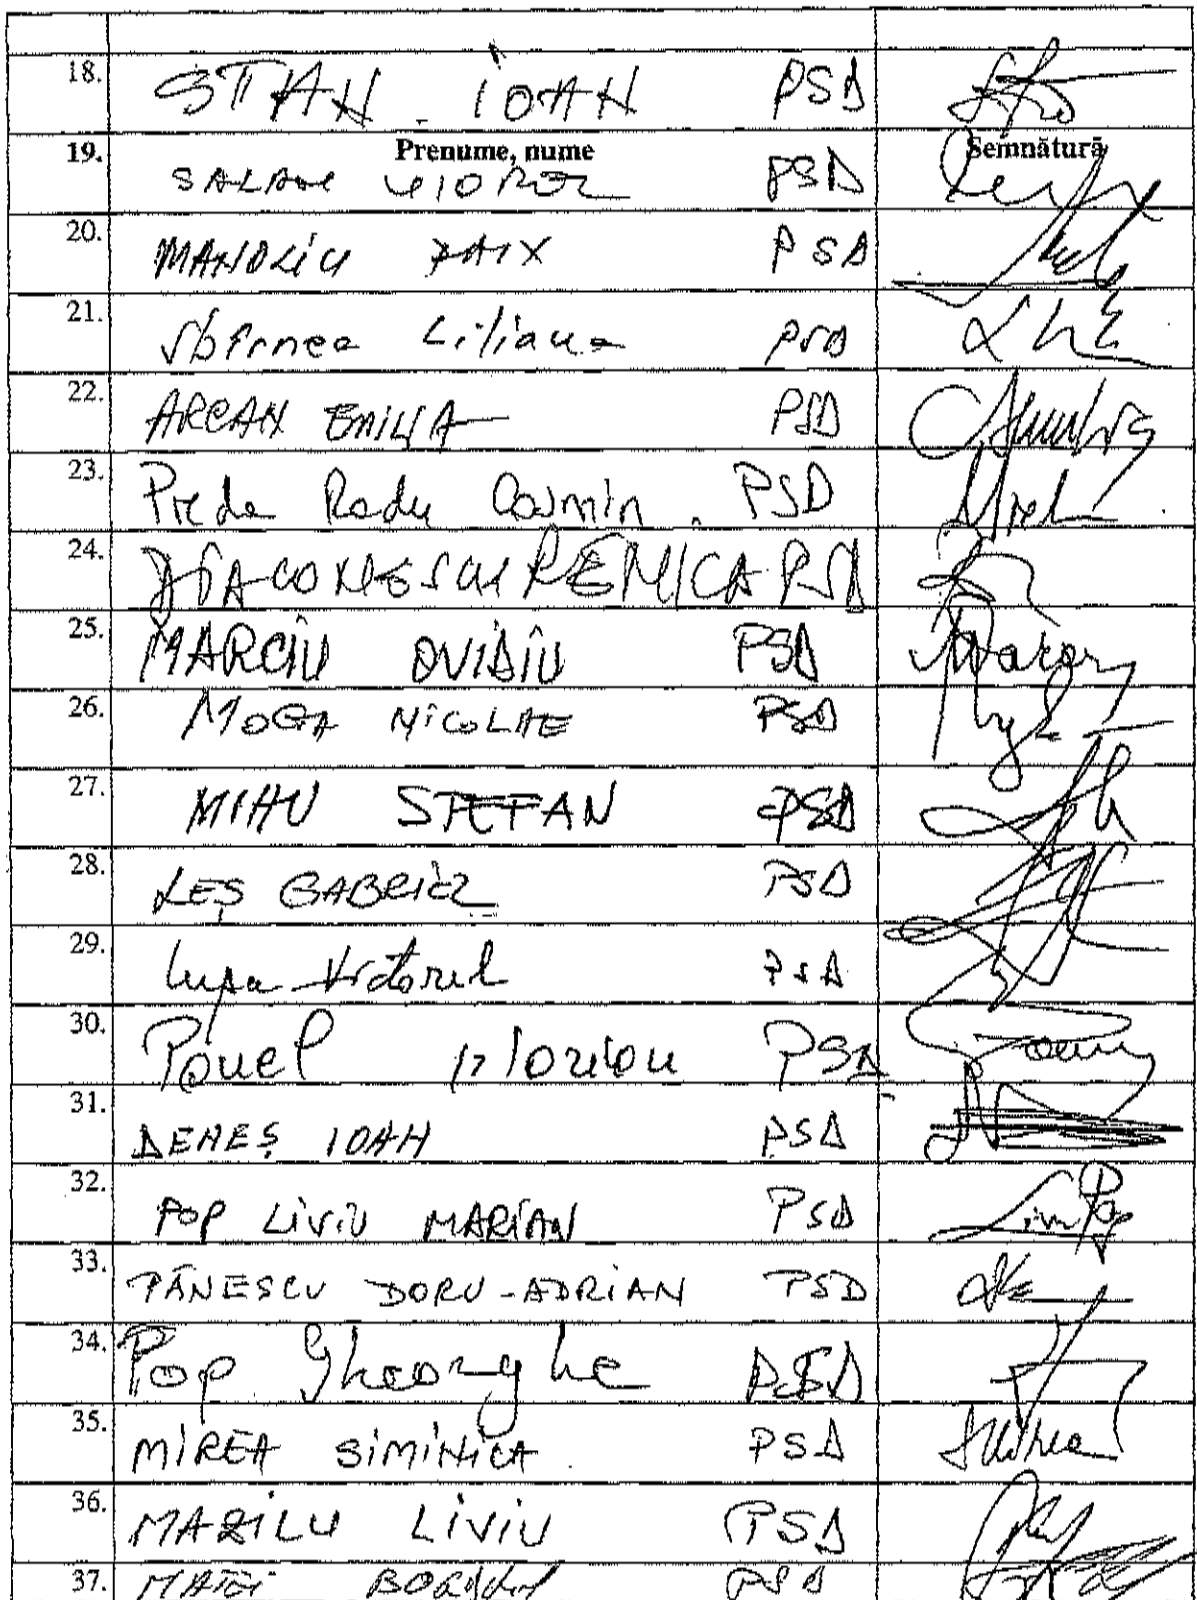 18. STAN IOAN PSD
19. Prenume, nume Semnătură
SALAN VIOREL PSD
20. MANOLIU PSD
21. Sbîrnea Liliana PSD
22. ARCAN EMILIA PSD
23. Preda Radu Cosmin PSD
24. DIACONESCU RENICA PSD
25. MARCIU OVIDIU PSD
26. MOGA NICOLAE PSD
27. MIHU STEFAN PSD
28. LEŞ GABRIEL PSD
29. Lupu Victorel PSD
30. PSD
31. DENEŞ IOAN PSD
32. POP LIVIU MARIAN PSD Liviu Pop
33. PĂNESCU DORU-ADRIAN PSD
34. Pop Gheorghe PSD
35. MIREA SIMINICA PSD
36. MAZILU LIVIU PSD
37. MATEI BOGDAN PSD